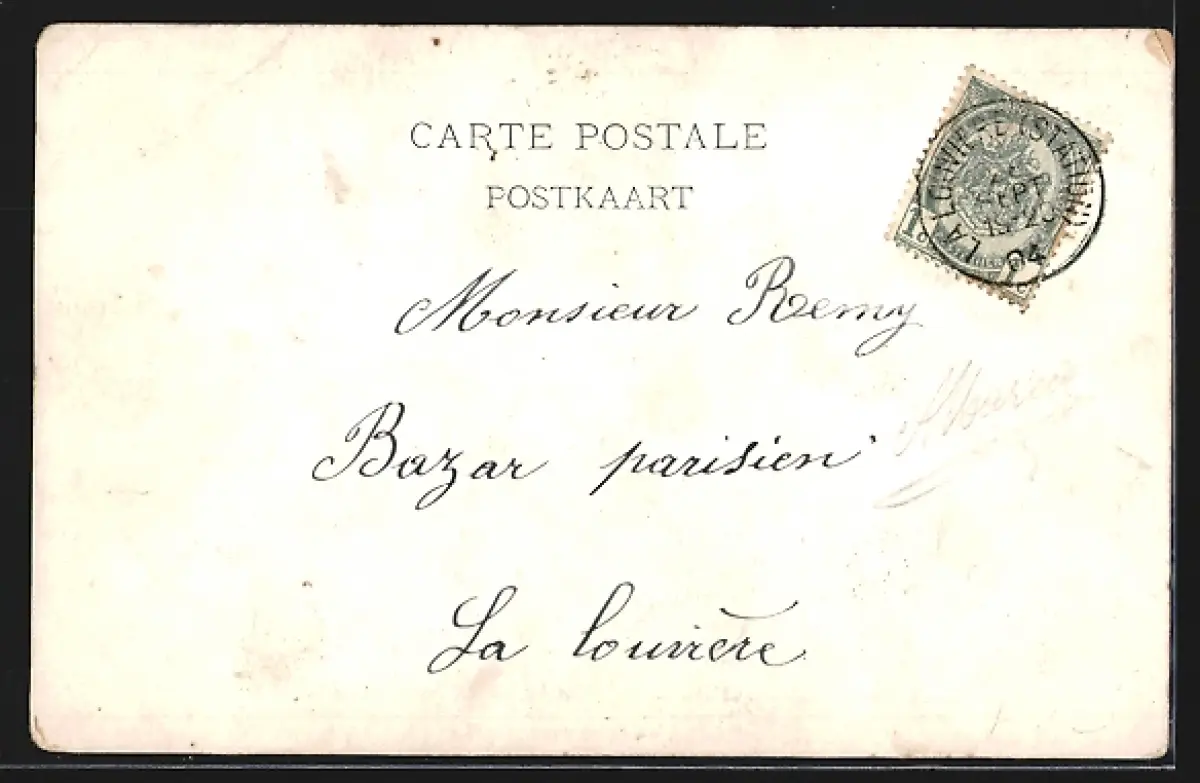 CARTE POSTALE
POSTKAART
LA LOUVIERE (STATION)
SEPT
04
1
Monsieur Remy
Bazar parisien
La louvière